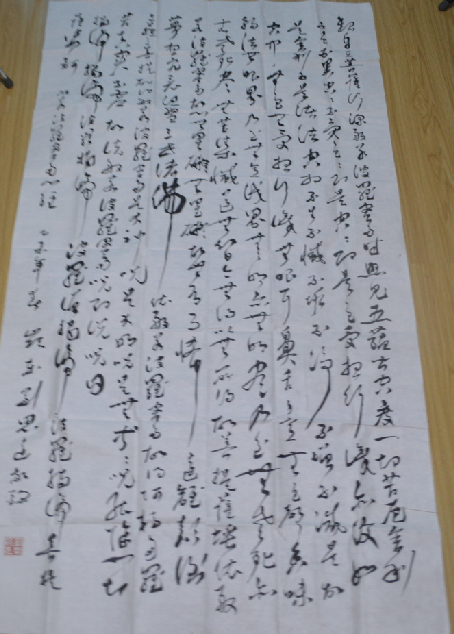 觀自在菩薩行深般若波羅蜜多時照見五蘊皆空度一切苦厄舍利
子色不異空空不異色色即是空空即是色受想行識亦復如
是舍利子是諸法空相不生不滅不垢不淨不增不減是故
空中無色無受想行識無眼耳鼻舌身意無色聲香味
觸法無眼界乃至無意識界無無明亦無無明盡乃至無老死亦
無老死盡無苦集滅道無智亦無得以無所得故菩提薩埵依般
若波羅蜜多故心無罣礙無罣礙故無有恐怖遠離顛倒
夢想究竟涅槃三世諸佛依般若波羅蜜多故得阿耨多羅
三藐三菩提故知般若波羅蜜多是大神咒是大明咒是無上咒是無等等咒能除一切
苦真實不虛故說般若波羅蜜多咒即說咒曰
揭諦揭諦波羅揭諦波羅僧揭諦菩提
薩婆訶般若波羅蜜多心經